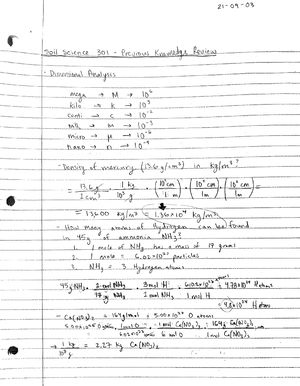 21-09-08
Soil Science 301 - Previous Knowledge Review
- Dimensional Analysis
mega → M → 10⁶
kilo → k → 10³
centi → c → 10⁻²
milli → m → 10⁻³
micro → μ → 10⁻⁶
nano → n → 10⁻⁹
- Density of mercury (13.6 g/cm³) in kg/m³?
= 13.6 g / 1 cm³ · 1 kg / 10³ g · (10² cm / 1 m) · (10² cm / 1m) · (10² cm / 1m) =
→ 13600 kg/m³ = 1.36×10⁴ kg/m³
- How many atoms of hydrogen can be found
in 45g of ammonia NH₃?
1. 1 mole of NH₃ has a mass of 17 grams
2. 1 mole = 6.02×10²³ particles
3. NH₃ = 3 Hydrogen atoms
45g NH₃ · 1 mol NH₃ / 17g NH₃ · 3 mol H / 1 mol NH₃ · 6.02×10²³ atoms / 1 mol H
= 4.8×10²⁴ H atoms
= Ca(NO₃)₂ = 164g/mol ; 5.00×10²⁵ O atoms
→ 1 kg / 10³ g = 2.27 kg Ca(NO₃)₂